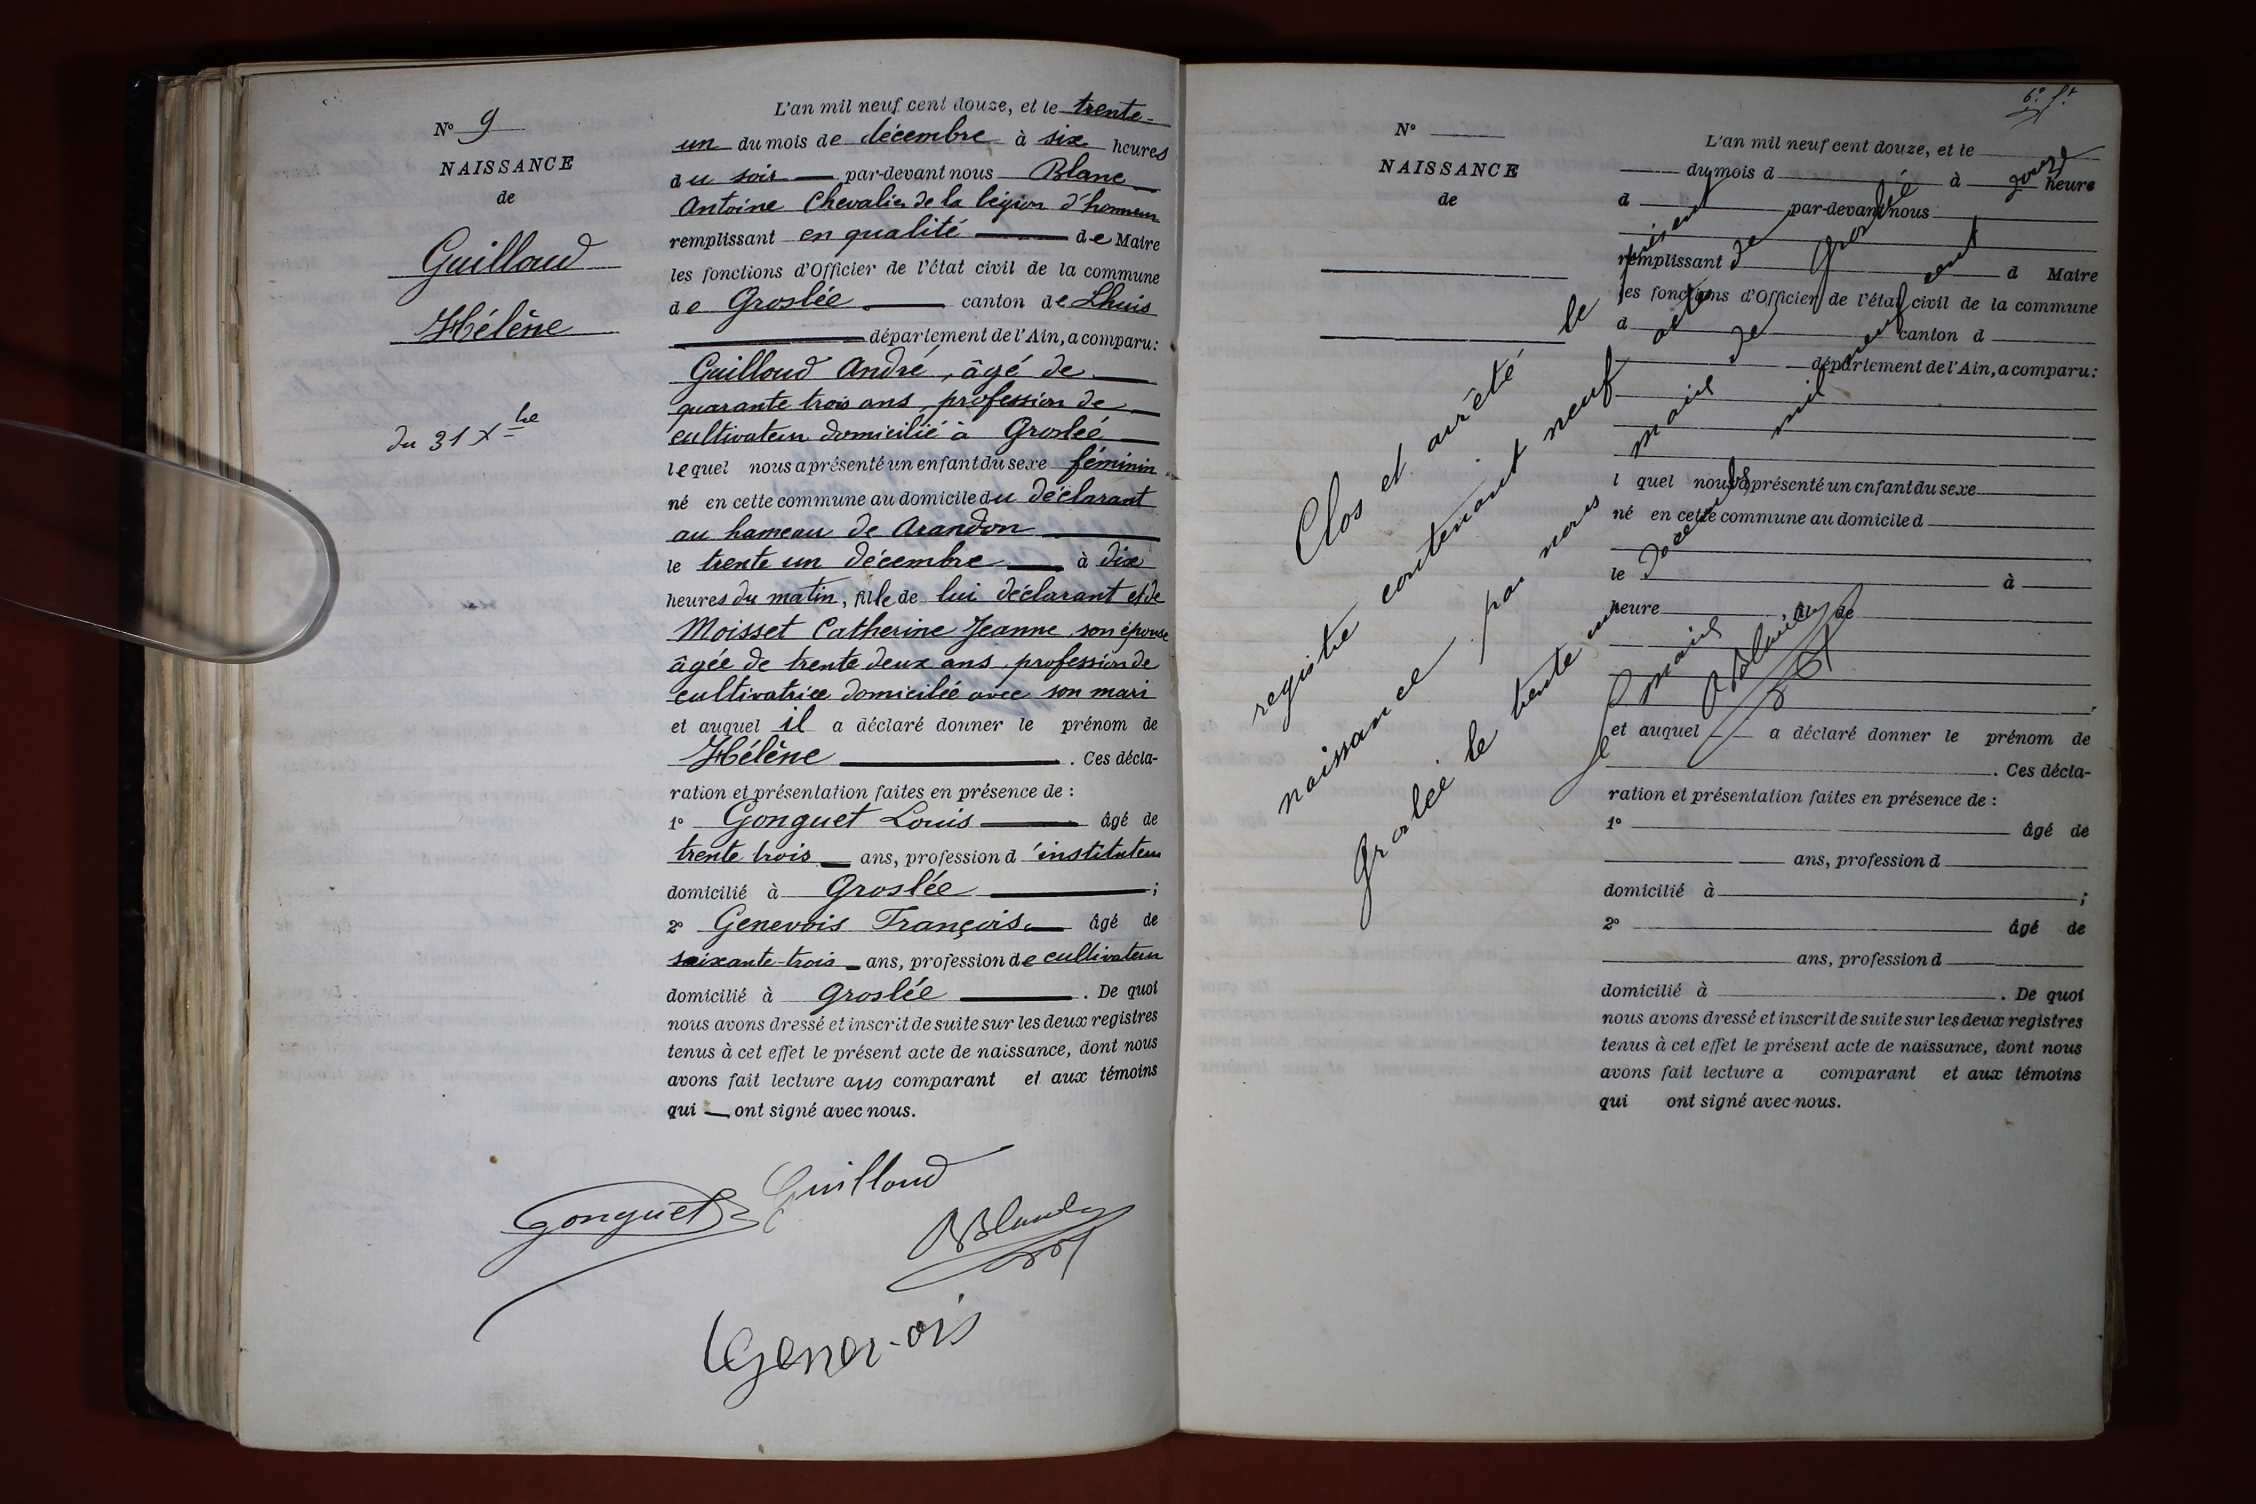 N° 9
NAISSANCE
de
Guilloud
Hélène
du 31 Xbre
L'an mil neuf cent douze, et le trente-
un du mois de décembre à six heures
du soir par-devant nous Blanc
Antoine Chevalier de la légion d'honneur
remplissant en qualité de Maire
les fonctions d'Officier de l'état civil de la commune
de Groslée canton de Lhuis
département de l'Ain, a comparu:
Guilloud André, âgé de
quarante trois ans, profession de
cultivateur domicilié à Groslée
lequel nous a présenté un enfant du sexe féminin
né en cette commune au domicile du déclarant
au hameau de Arandon
le trente un décembre à dix
heures du matin, fille de lui déclarant et de
Moisset Catherine Jeanne son épouse
âgée de trente deux ans, profession de
cultivatrice domiciliée avec son mari
et auquel il a déclaré donner le prénom de
Hélène . Ces décla-
ration et présentation faites en présence de :
1° Gonguet Louis âgé de
trente trois ans, profession d'instituteur
domicilié à Groslée ;
2° Genevois François âgé de
soixante-trois ans, profession de cultivateur
domicilié à Groslée . De quoi
nous avons dressé et inscrit de suite sur les deux registres
tenus à cet effet le présent acte de naissance, dont nous
avons fait lecture aux comparant et aux témoins
qui ont signé avec nous.
Guilloud
Gonguet
Genevois
N°
NAISSANCE
de
L'an mil neuf cent douze, et le
du mois d à heure
d par-devant nous
remplissant d Maire
les fonctions d'Officier de l'état civil de la commune
d canton d
département de l'Ain, a comparu:
l quel nous a présenté un enfant du sexe
né en cette commune au domicile d
le à
heure fil de
et auquel a déclaré donner le prénom de
. Ces décla-
ration et présentation faites en présence de :
1° âgé de
ans, profession d
domicilié à ;
2° âgé de
ans, profession d
domicilié à . De quoi
nous avons dressé et inscrit de suite sur les deux registres
tenus à cet effet le présent acte de naissance, dont nous
avons fait lecture a comparant et aux témoins
qui ont signé avec nous.
Clos et arrêté le présent
registre contenant neuf actes de
naissance par nous maire de Groslée
Groslée le trente un Décembre mil neuf cent douze
Le Maire